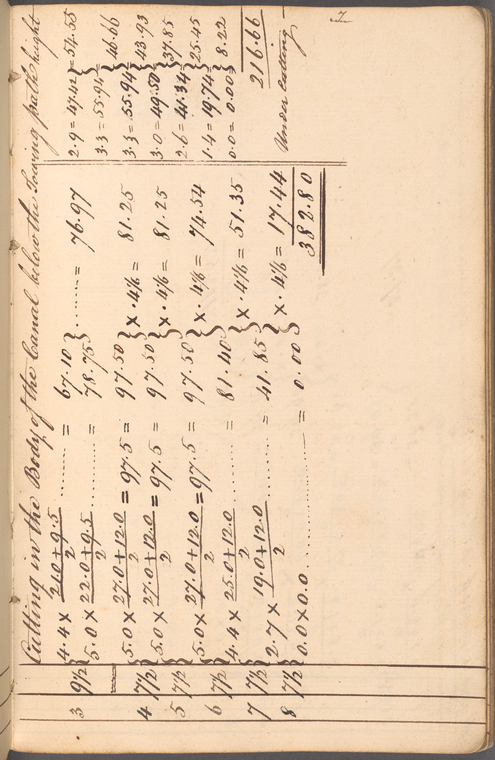 Cutting in the Body of the Canal below the Towing path height
4.4 × 21.0+9.5/2 ........ = 67.10 ........ = 76.97 2.9 = 47.42 = 54.55
3 9½ 5.0 × 22.0+9.5/2 ........ = 78.75 3.3 = 55.94
46.66
5.0 × 27.0+12.0/2 = 97.5 = 97.50 × .4⅙ = 81.25 3.3 = 55.94
4 7½ 5.0 × 27.0+12.0/2 = 97.5 97.50 × .4⅙ = 81.25 3.0 = 49.50 43.93
5 7½ 5.0 × 27.0+12.0/2 = 97.5 = 97.50 × .4⅙ = 74.54 2.6 = 41.34 37.85
6 7½ 4.4 × 25.0+12.0/2 ........ = 81.40 × .4⅙ = 51.35 1.4 = 19.74 25.45
7 7½ 2.7 × 19.0+12.0/2 ........ = 41.85 × .4⅙ = 17.44 0.0 = 0.00 8.22
8 7½ 0.0 × 0.0 ........ = 0.00
382.80 216.66
Under Cutting